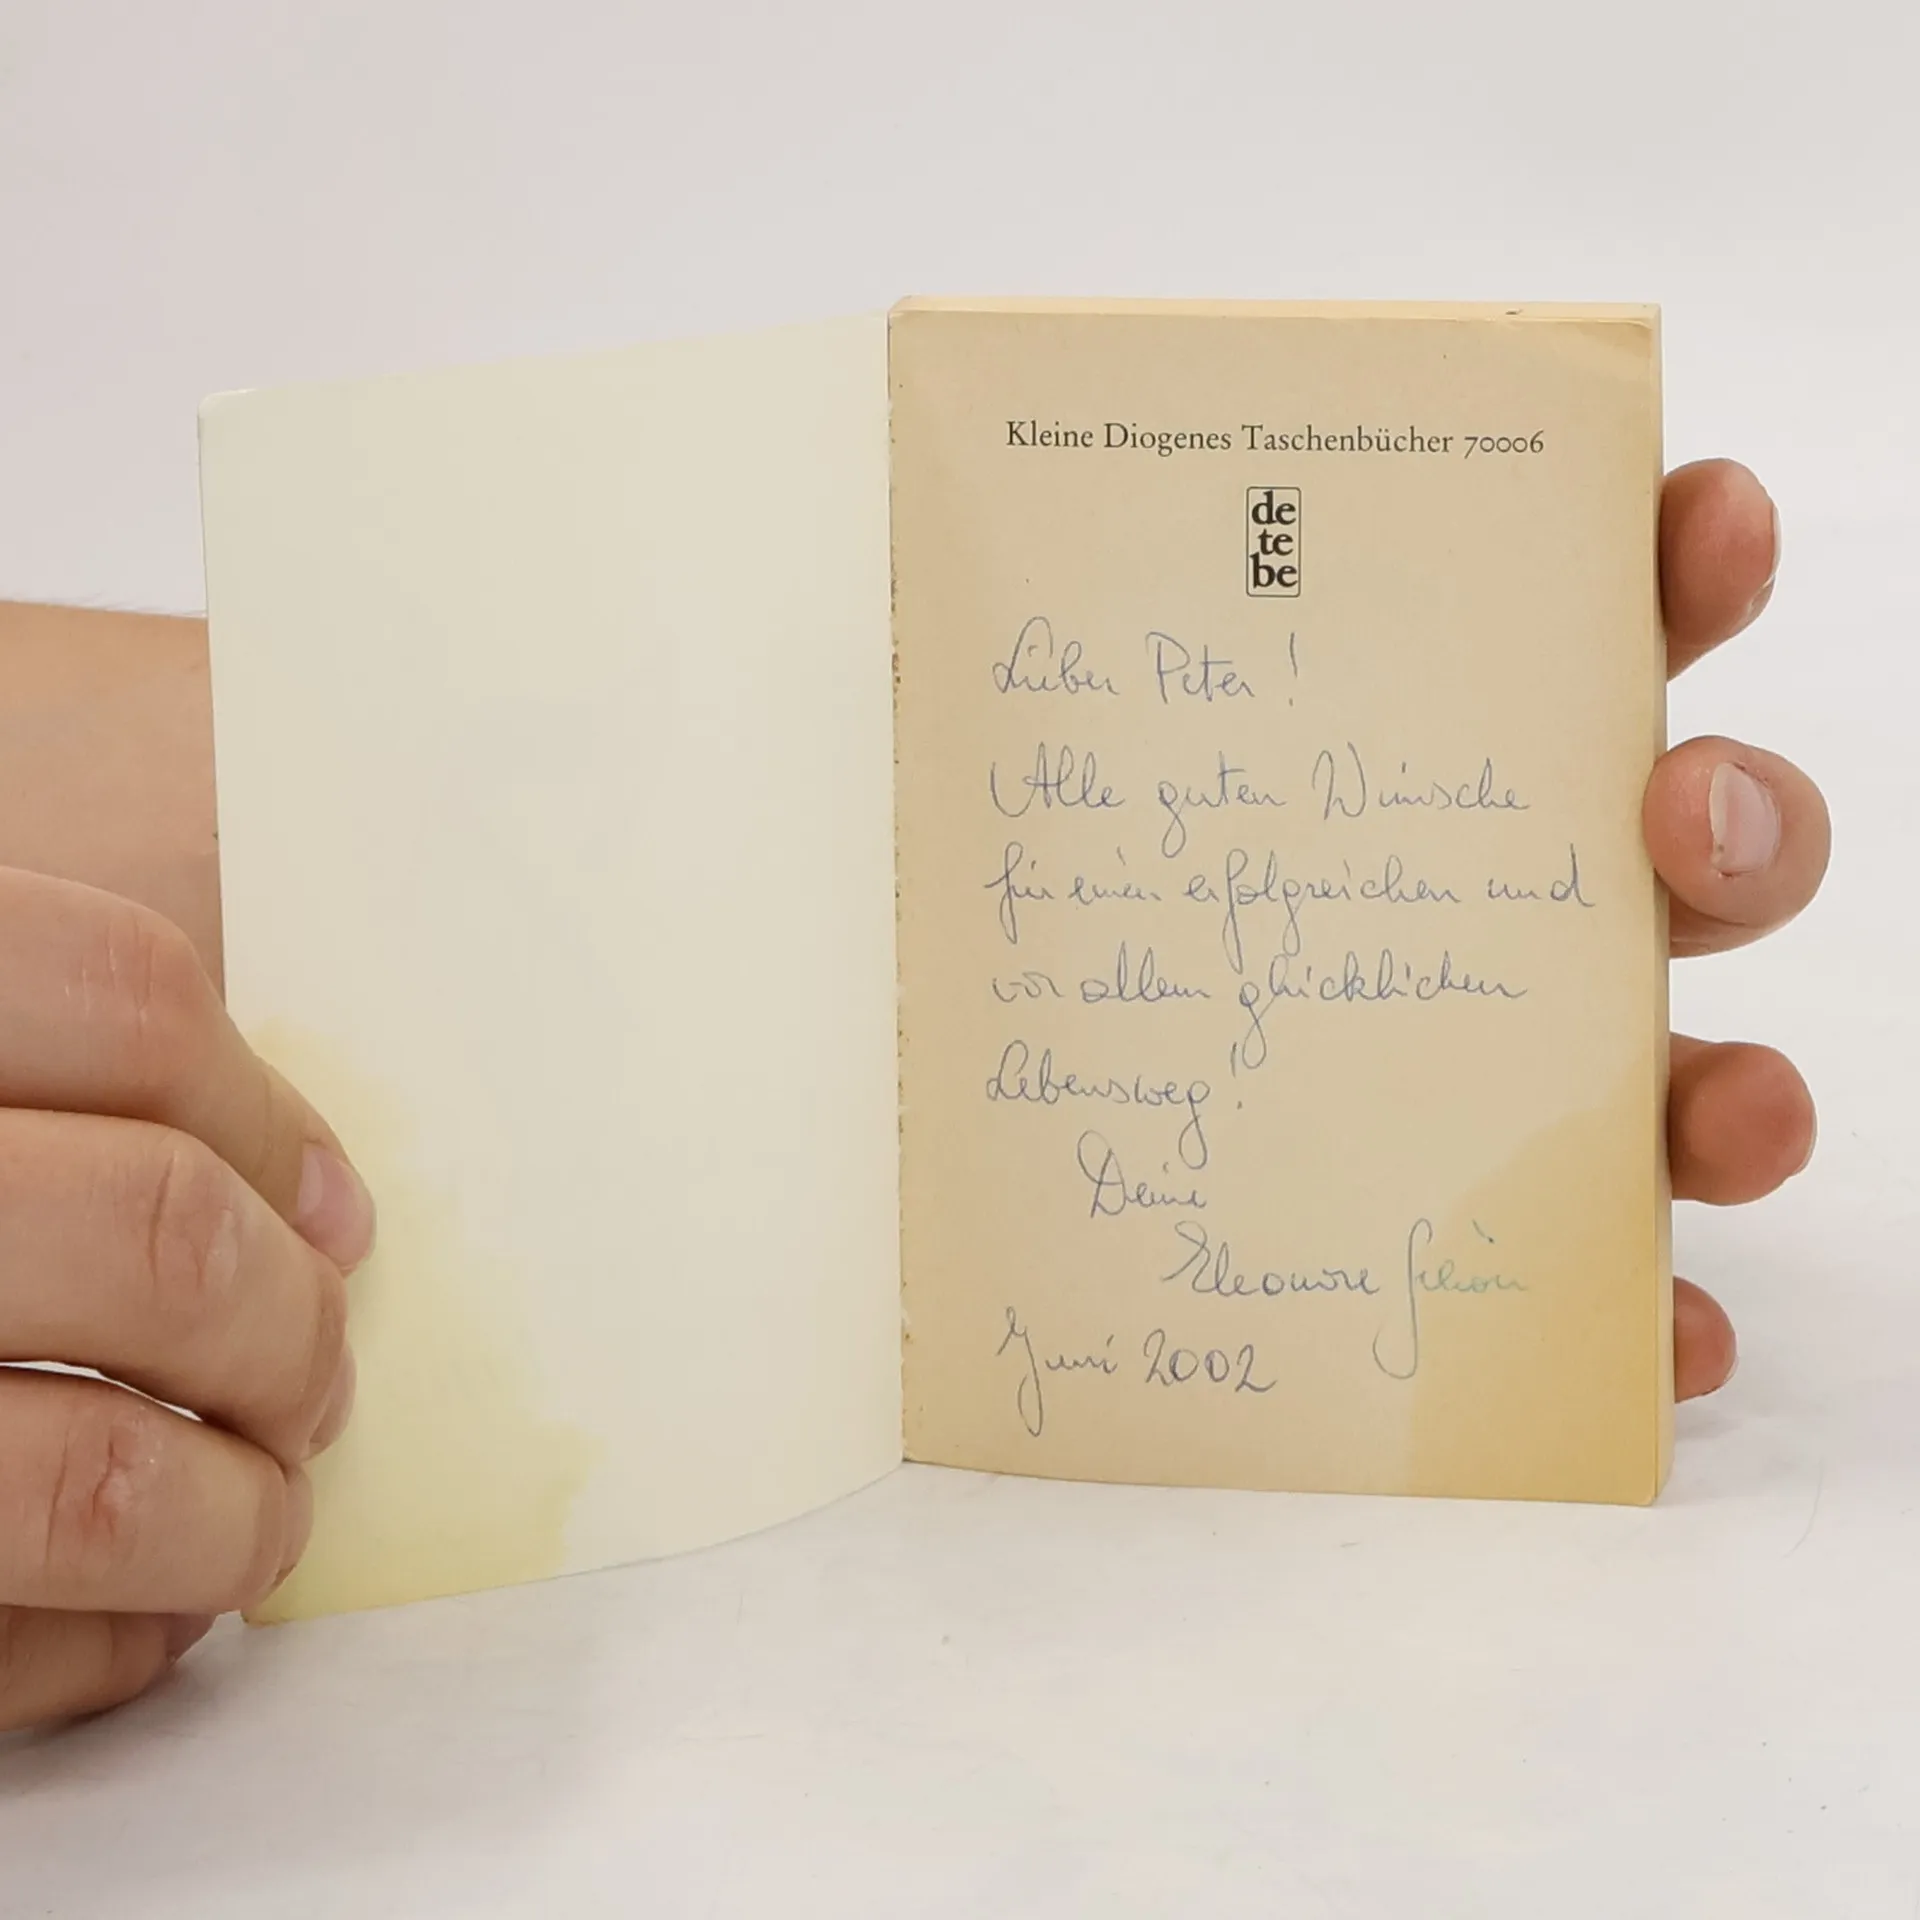 Kleine Diogenes Taschenbücher 70006
de
te
be
Lieber Peter!
Alle guten Wünsche
für einen erfolgreichen und
vor allem glücklichen
Lebensweg!
Deine
Eleonore
Juni 2002